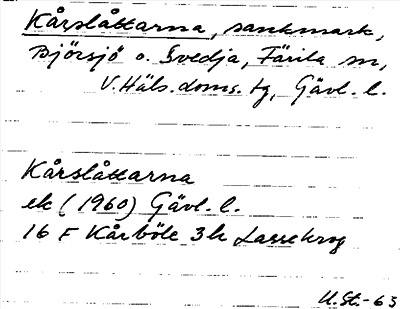 Kårslåttarna, sankmark,
Björsjö o. Svedja, Färila sn,
V. Häls. doms. tg, Gävl. l.
Kårslåttarna
ek (1960) Gävl. l.
16 F Kårböle 3h Lassekrog
U.St.-63